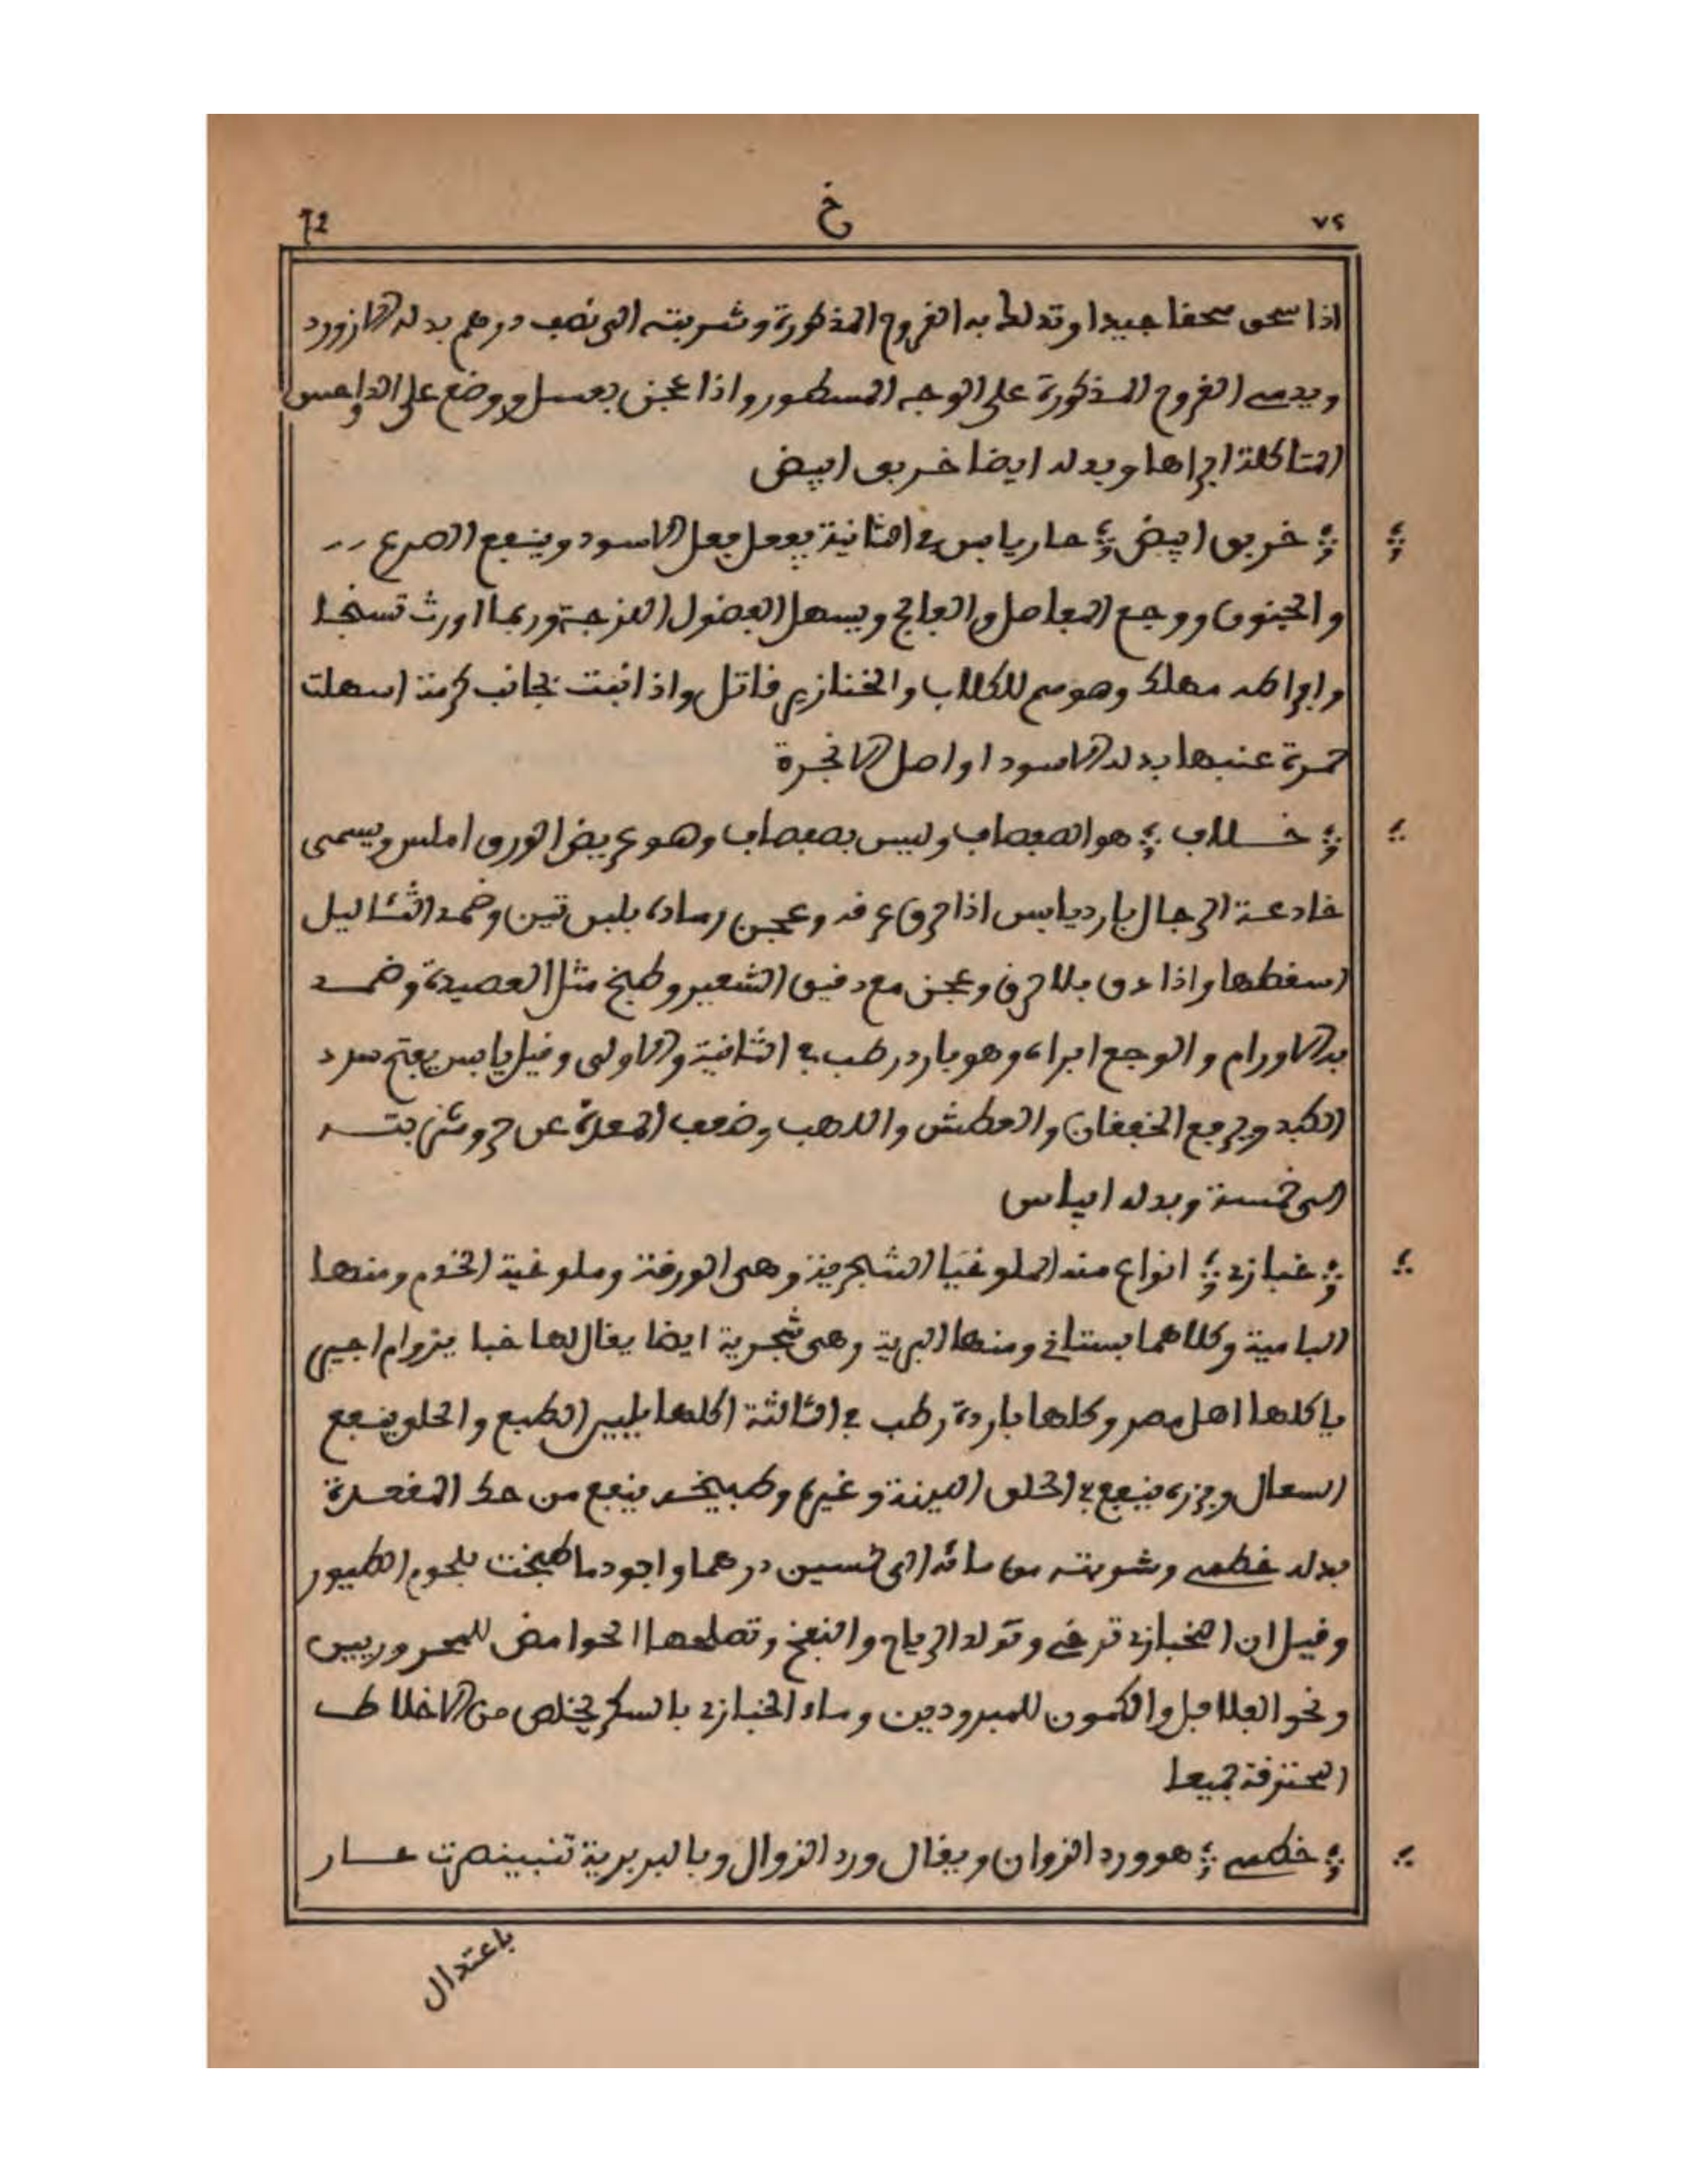 ٧٢ خ 72
اذا سحق سحقا جيدا وتدلك به القروح المذكورة وشربته الى نصف درهم بدله لازورد
ويدمى القروح المذكورة على الوجه المسطور واذا عجن بعسل ووضع على الدواحس
المتاكلة ابراها وبدله ايضا خربق ابيض
خربق ابيض حار يابس في الثانية يفعل فعل الاسود وينفع الصرع
والجنون ووجع المفاصل والفالج ويسهل الفضول اللزجة وربما اورث تسنجا
وافراطه مهلك وهو سم للكلاب والخنازير قاتل واذا نبت بجانب كرمة اسهلت
خمرة عنبها بدله الاسود او اصل الانجرة
خلاف هو الصفصاف وليس بصفصاف وهو عريض الورق املس ويسمى
خادعة الرجال بارد يابس اذا حرق عرقه وعجن رماده بلبن تين وضمد الثئاليل
اسقطها واذا دق بلا حرق وعجن مع دقيق الشعير وطبخ مثل العصيدة وضمد
به الاورام والوجع ابراه وهو بارد رطب في الثانية والاولى وقيل يابس يفتح سدد
الكبد ويرفع الخفقان والعطش واللهب وضعف المعدة عن حر وشربته
الى خمسة وبدله ايباس
خبازى انواع منه الملوخيا الشجرية وهي الورقة وملوخية الخدم ومنها
البامية وكلاهما بستاني ومنها البرية وهي شجرية ايضا يقال لها خبا يزوام اجيبي
ياكلها اهل مصر وكلها باردة رطب في الثالثة اكلها يليين الطبع والحلو ينفع
السعال وبزره ينفع في الحلق اللينة وغيره وطبيخه ينفع من حكة المقعدة
بدله خطمى وشربته من مائه الى خمسين درهما واجودها طبخت بلحوم الطيور
وقيل ان الخبازى ترخي وتولد الرياح والنفخ وتصلحها الحوامض للمحروريين
ونحو الفلافل والكمون للمبرودين وماء الخبازى بالسكر يخلص من الاخلاط
المحترقة جميعا
خطمى هو ورد الزوان ويقال ورد الزوال وبالبربرية تنبينصرت حار
باعتدال